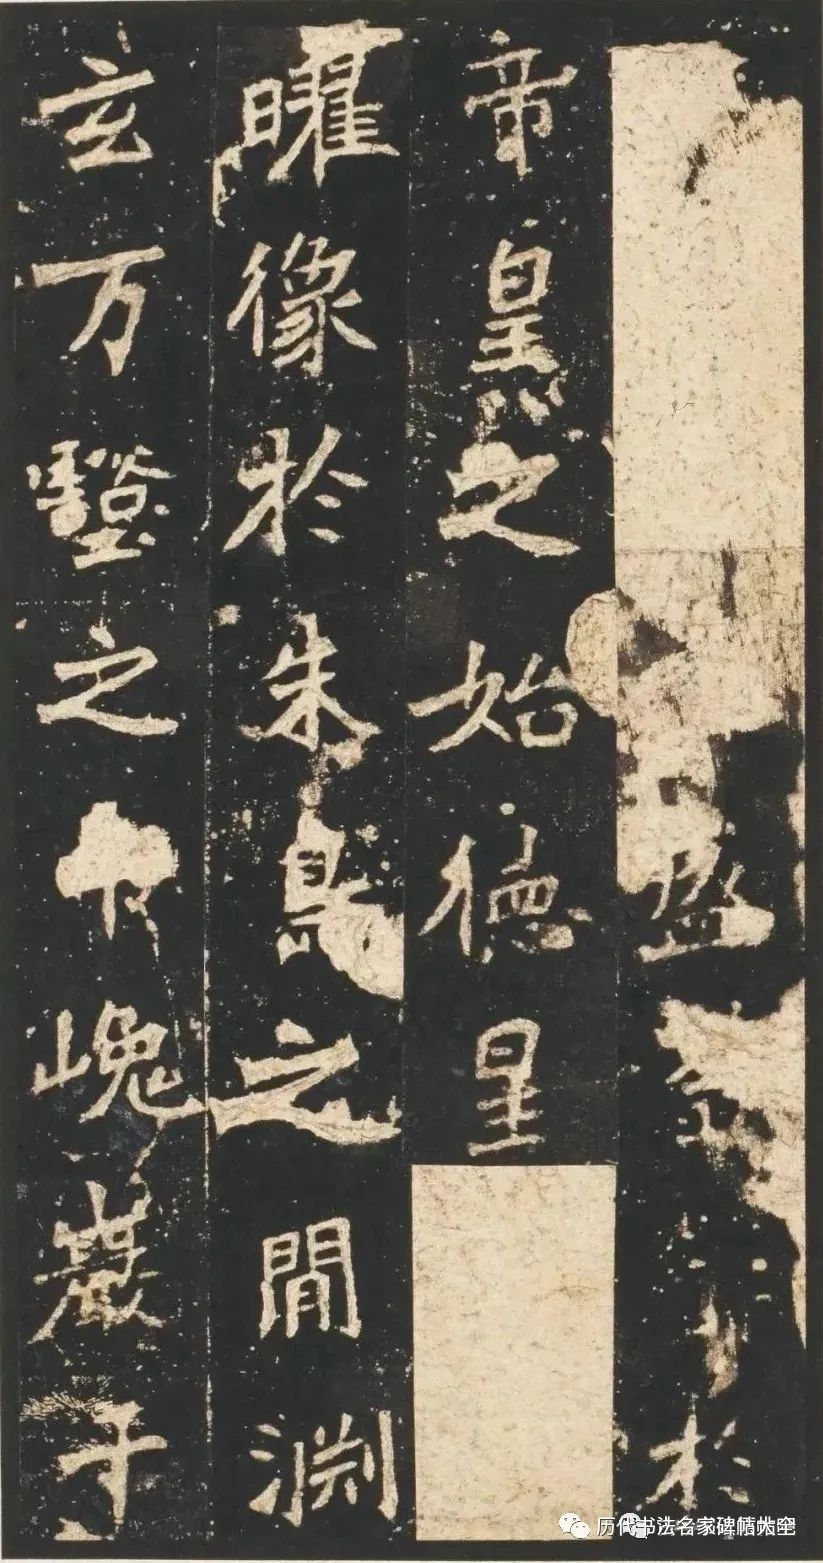 盛於
帝皇之始德星
曜像於朱鳥之閒淵
玄万壑之嵬巖千
历代书法名家碑帖大全